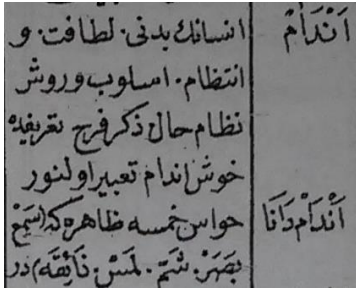 اَنْدَامْ انسانك بدنی. لطافت. و
انتظام. اسلوب وروش
نظام حال. ذكر فرج تعريفيده
خوش اندام تعبير اولنور
اَنْدَامْ دَانَا حواس خمسه ظاهره كه (سَمْعْ
بَصَرْ. شَمّ. لَمْسْ. ذَائِقَه) در